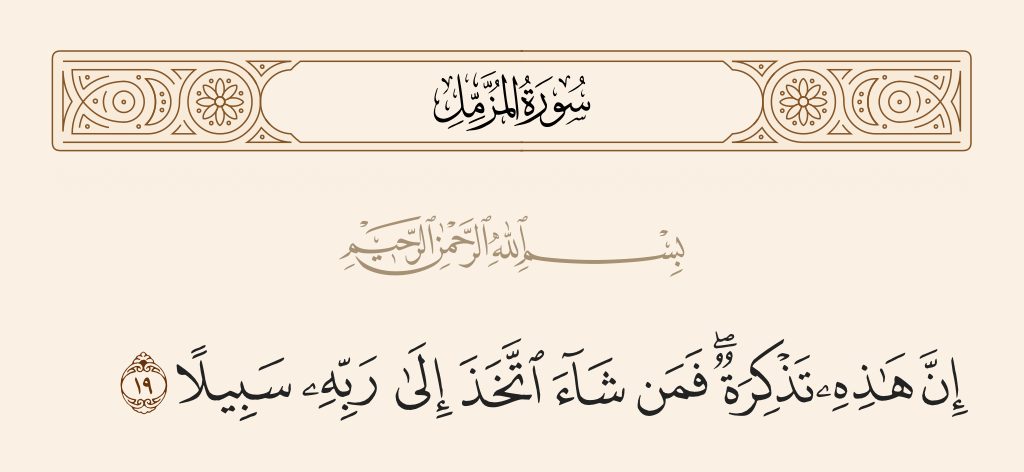 سُورَةُ المُزَّمِّلِ
بِسْمِ ٱللَّهِ ٱلرَّحْمَٰنِ ٱلرَّحِيمِ
إِنَّ هَٰذِهِۦ تَذْكِرَةٌۖ فَمَن شَآءَ ٱتَّخَذَ إِلَىٰ رَبِّهِۦ سَبِيلًا ١٩